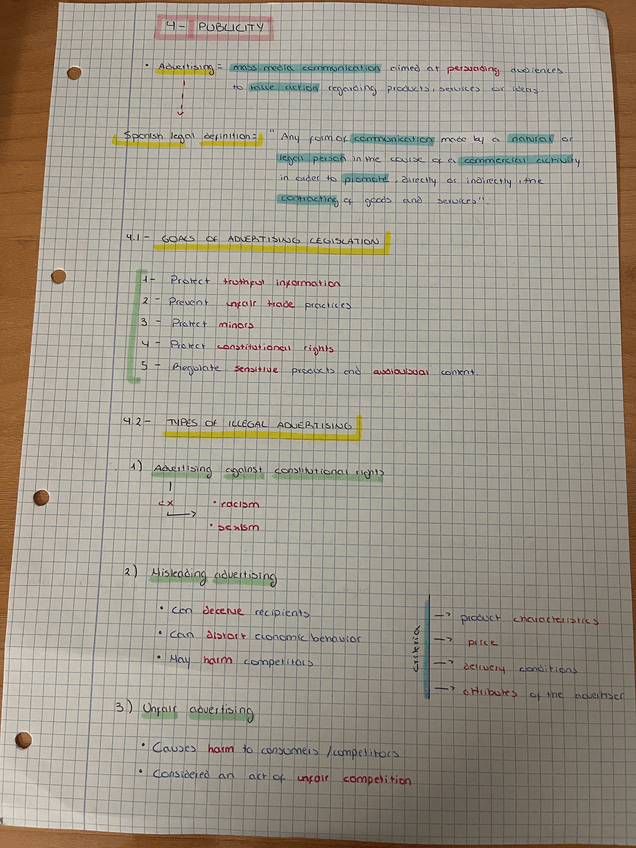 4- PUBLICITY
• Advertising = mass media communication aimed at persuading audiences
to raise action regarding products, services or ideas.
Spanish legal definition = " Any form of communication made by a natural or
legal person in the course of a commercial activity
in order to promote, directly or indirectly, the
contracting of goods and services".
4.1- GOALS OF ADVERTISING LEGISLATION
1- Protect truthful information
2- Prevent unfair trade practices
3- Protect minors
4- Protect constitutional rights
5- Regulate sensitive products and audiovisual content.
4.2- TYPES OF ILLEGAL ADVERTISING
1) Advertising against constitutional rights
ex
• racism
• sexism
2) Misleading advertising
• Can deceive recipients
• Can distort economic behavior
• May harm competitors
criteria
→ product characteristics
→ price
→ delivery conditions
→ attributes of the advertiser
3) Unfair advertising
• Causes harm to consumers/competitors
• Considered an act of unfair competition